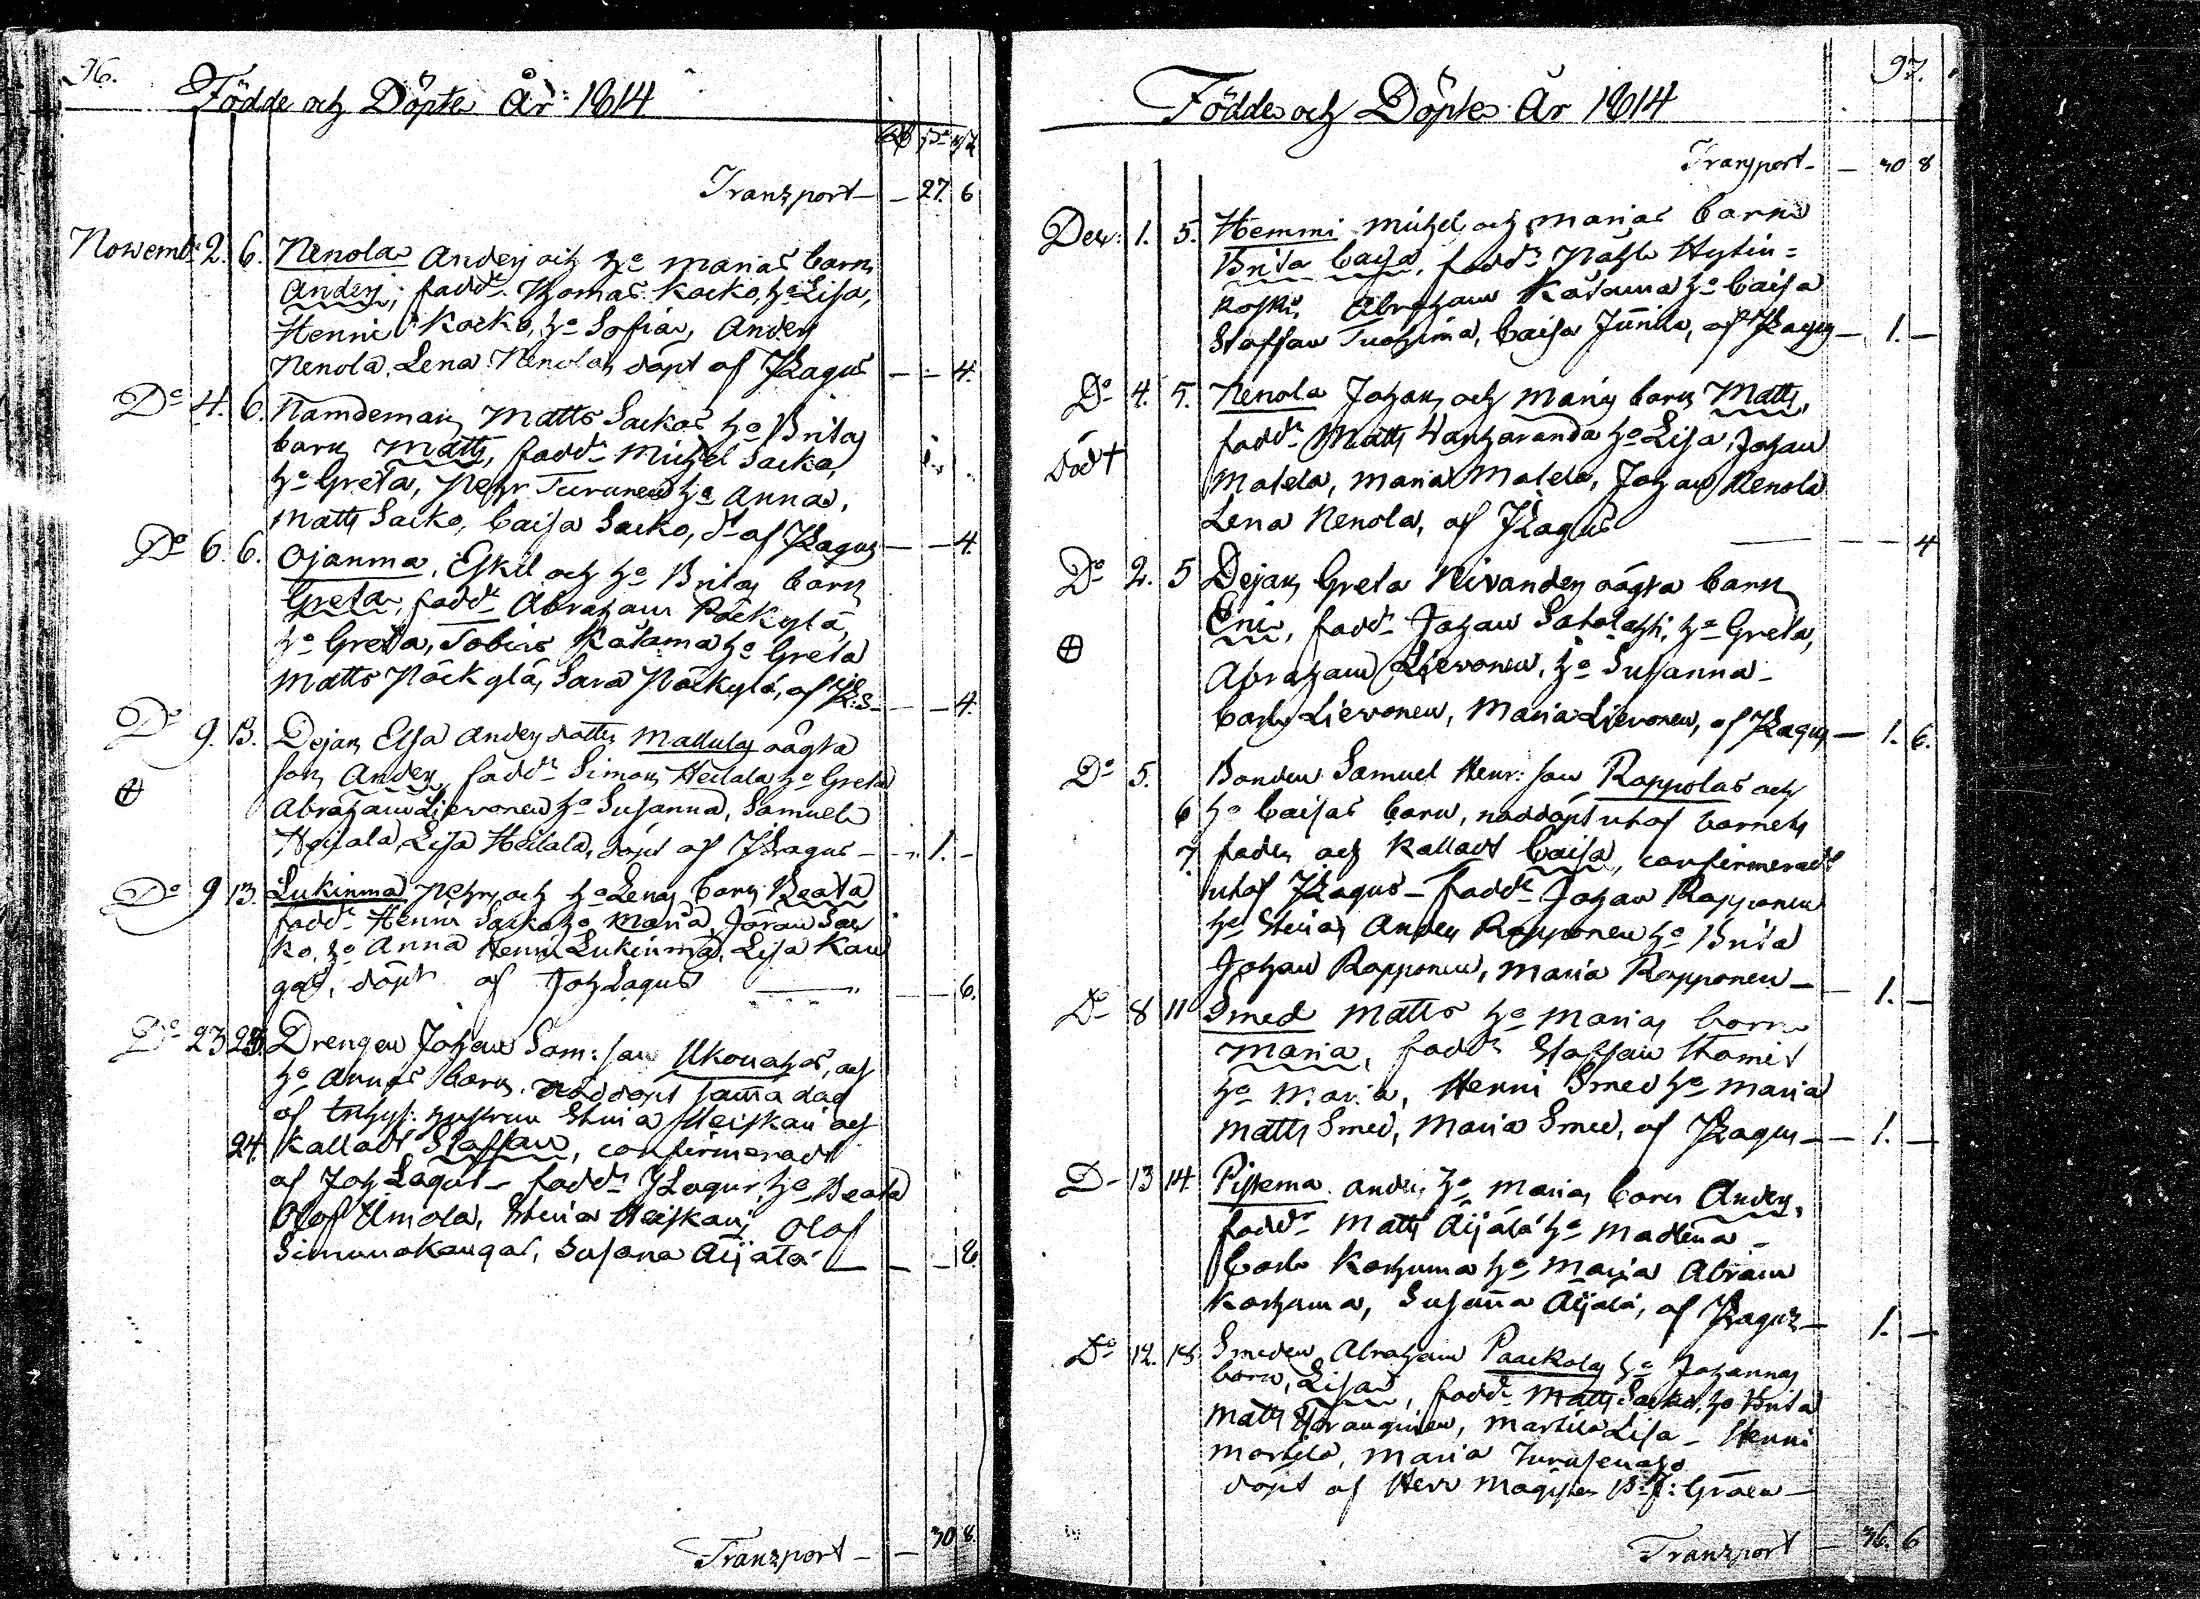 96.
Födde och Döpte År 1814
Transport — — 27. 6
Novemb: 2. 6. Nenola Anders och h:o Marias barn
Anders, fadd: Thomas Kocko, h:o Lisa,
Henric Kocko, h:o Sofia, Anders
Nenola, Lena Nenola, döpt af JLagus — — 4.
D:o 4. 6. Namdeman Matts Sackos h:o Britas
barn Matts, fadd: Michel Sacko,
h:o Greta, Pehr Turunen h:o Anna,
Matts Sacko, Caisa Sacko, d:t af JLagus — — 4.
D:o 6. 6. Ojanma, Eskil och h:o Britas barn
Greta, fadd: Abraham Päckylä,
h:o Greta, Tobias Kätama h:o Greta
Matts Päckylä, Sara Päckylä, af — — 4.
D:o 9. 13. Dejan Elsa Anders dotter Mallulas oägta
son Anders, fadd: Simon Heilala h:o Greta
Abraham Lievonen h:o Susanna, Samuel
Heilala, Lisa Heilala, döpt af JLagus — 1. —
D:o 9 13. Lukinma Pehrs och h:o Lenas barn Beata
fadd: Henric Sacko h:o Maria, Jöran Sac
ko, h:o Anna Henric Lukinma, Lisa Kan
gas, döpt af Joh Lagus — — 6.
D:o 23 Drengen Johan Sam: son Ukonahos, och
h:o Annas barn nöddöpt samma dag
af hustrun Stina Heiskari och
24. kalladt Staffan, confirmeradt
af Joh Lagus — fadd: JLagus, h:o Beata
Olof Uimola, Stina Heiskari, Olof
Simunakangas, Susana Äijälä — — 8
Transport — — 30 8.
97.
Födde och Döpte År 1814
Transport — — 30 8
Dec: 1. 5. Hemmi Michel och Marias barn
Brita Caisa, fadd: Påhl Hytin=
koski, Abraham Kätama h:o Caisa
Staffan Tuohima, Caisa Junna, af JLagus — 1. —
D:o 4. 5. Nenola Johans och Marias barn Matts,
död † fadd: Matts Wanharanda h:o Lisa, Johan
Matela, Maria Matela, Johan Nenola
Lena Nenola, af JLagus — — 4
D:o 2. 5 Dejan Greta Nivanders oägta barn
Eric, fadd: Johan Satolahti, h:o Greta,
Abraham Lievonen, h:o Susanna —
Carl Lievonen, Maria Lievonen, af JLagus — 1. 6.
D:o 5. Bonden Samuel Henr: son Rappolas och
6 h:o Caisas barn, nöddöpt utaf barnets
7. fader och kalladt Caisa, confirmeradt
utaf JLagus — fadd: Johan Rapponen
h:o Stina, Anders Rapponen h:o Brita
Johan Rapponen, Maria Rapponen — — 1. —
D:o 8 11 Smed Matts h:o Marias barn
Maria, fadd: Staffan
h:o Maria, Henric Smed h:o Maria
Matts Smed, Maria Smed, af JLagus — — 1. —
D:o 13 14 Pistema Anders h:o Marias barn Anders,
fadd: Matts Äijälä h:o Madlena —
Carl Korhuma h:o Maria Abram
Korhuma, Susanna Äijälä, af JLagus — 1. —
D:o 12. 18. Smeden Abraham Paackolas h:o Johannas
barn, Lisa, fadd: Matts Sacko, h:o Brita
Matts, Martila Lisa — Henric
Martila, Maria
döpt af Herr Magister B: J: Græen —
Transport — 36. 6